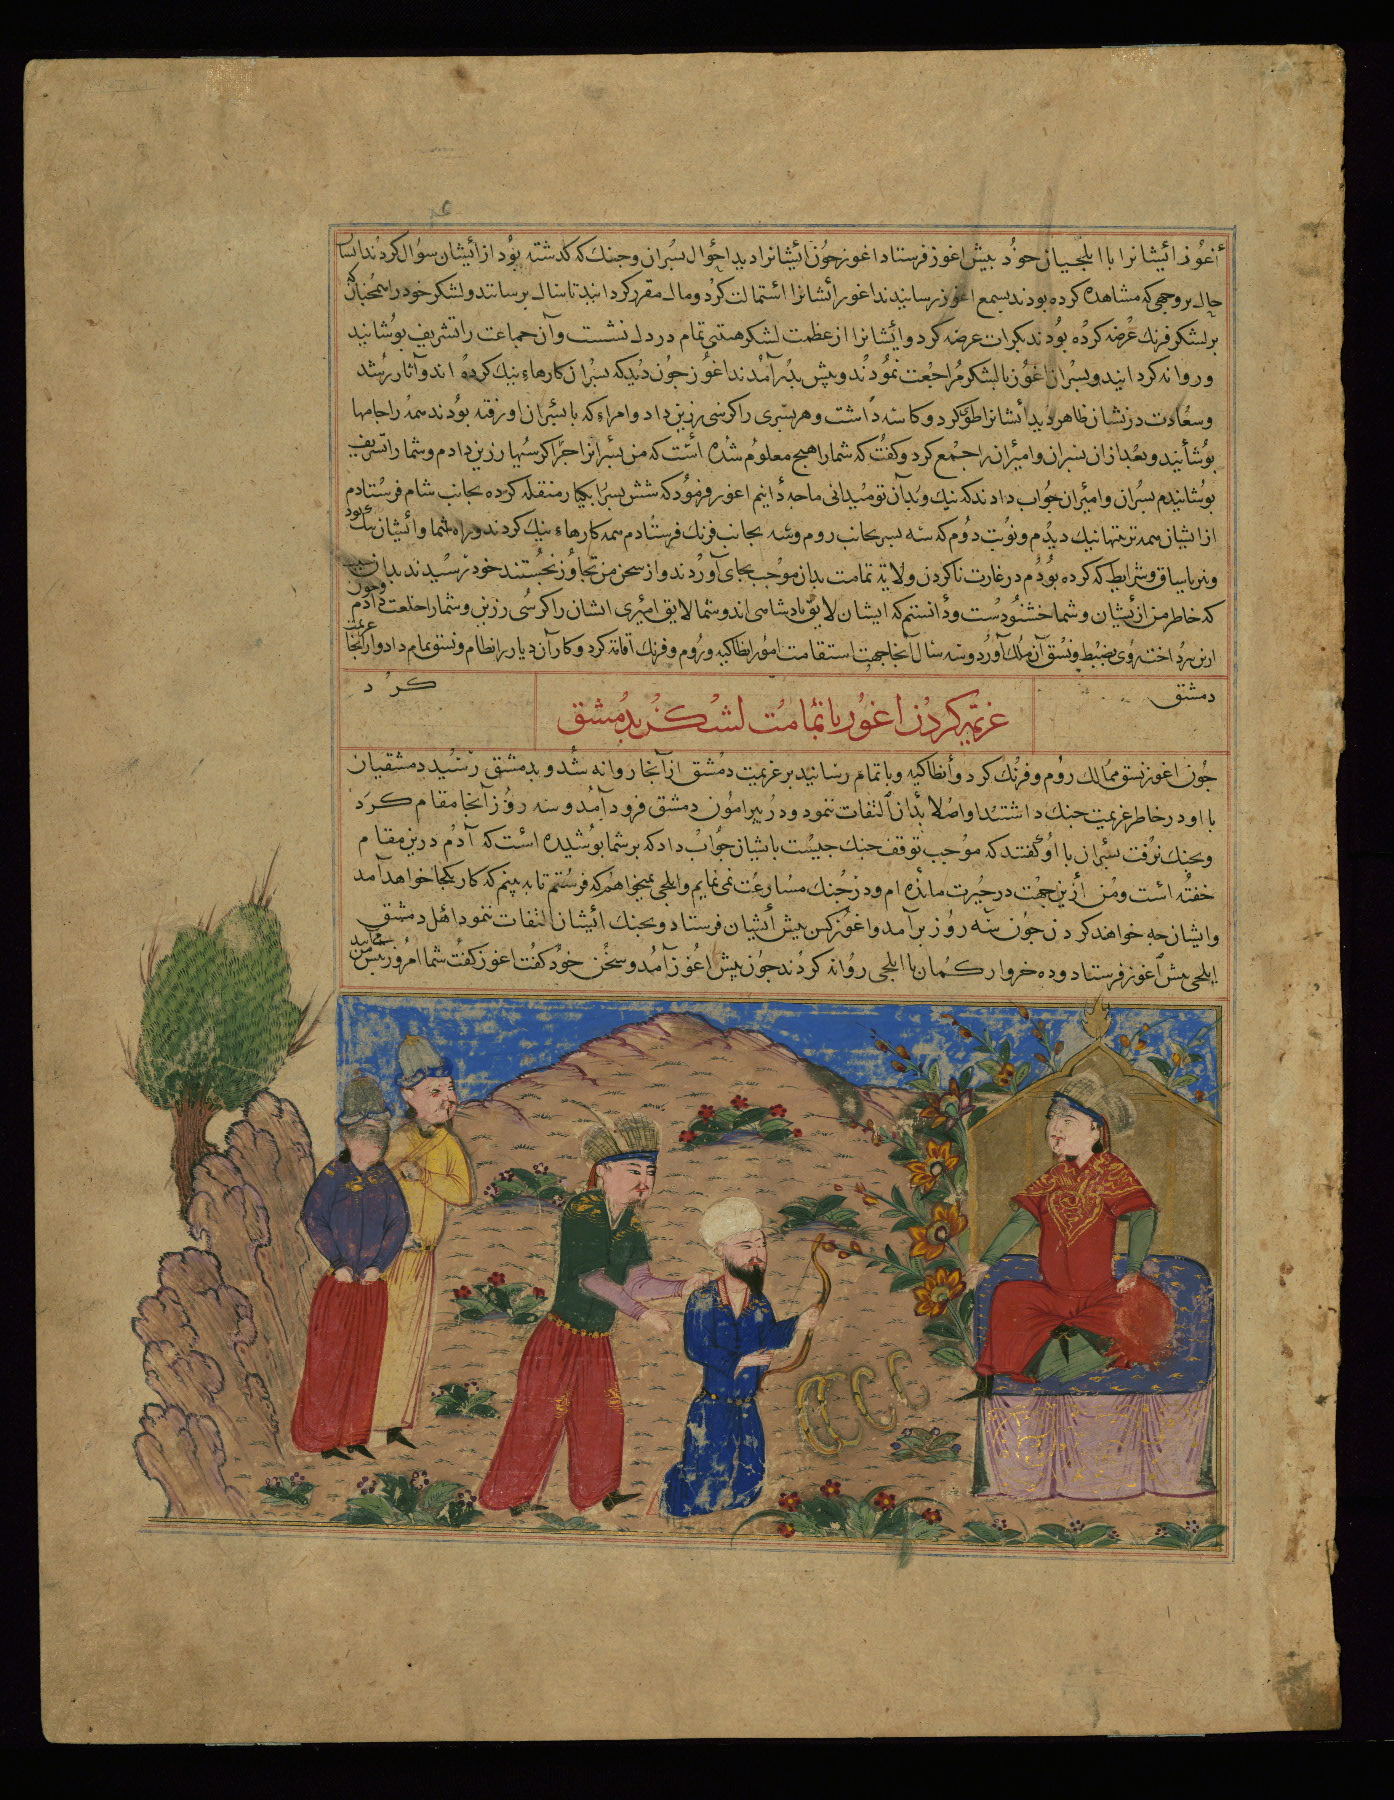 أغوز أیشانرا با ایلجیان خود بیش اغوز فرستاد اغوز جون أیشانرا دید احوال بسران و جنك که کذشته بوذ از أیشان سؤال کردند ایشان
حال بر وجهی که مشاهده کرده بودند بسمع اغوز رسانیدند اغور أنشانرا استمالت کرد و مال مقرر کردانید تا سال برسانند و لشکر خود را
بر لشکر فرنك عرضه کرده بودند بکرات عرضه کرد و أیشانرا از عظمت لشکر هیبتی تمام در دل نشست و آن جماعت را تشریف بوشانید
و روانه کردانید و بسران اغوز با لشکر مراجعت نمودند و بیش بدر آمدند اغوز جون دید که بسران کارهاء نیك کرده اند و آثار رشد
و سعادت در نشان ظاهر دید أنشانرا طوی کرد و کاسه داشت و هر بسری را کرسی زرین داد و امراء که با بسران او رفته بودند همه را جامها
بوشانید و بعد از آن بسران و امیران را جمع کرد و کفت که شما را هیج معلوم شده است که من بسرانرا جرا کرسیها زرین دادم و شما را تشریف
بوشانیدم بسران و امیران جواب دادند که نیك و بد آن تو میدانی ما جه دانیم اغوز فرمود که شش بسر را بکبار منقله کرده بجانب شام فرستادم
از ایشان همه ترتیبها نیك دیدم و نوبت دوم که سه بسر بجانب روم و سه بجانب فرنك فرستادم همه کارهاء نیك کردند و راه شما و أیشان نیك بود
و بر یاساق و شرایط که کرده بودم در غارت ناکردن ولایة تمامت بدان موجب بجای آوردند و از سخن من تجاوز نجستند خود نرسیدند بدان
که خاطر من از أیشان و شما خشنودست و دانستم که ایشان لایق بادشاهی اند و شما لایق امیری ایشان را کرسی زرین و شما را خلعت دادم و جون
ازین برداخت روی بضبط و نسق آن ملك آورد و سه سال آنجا جهت استقامت امور انطاکیه و روم و فرنك اقامة کرد و کار آن دیار را نظام و نسق تمام داد و از آنجا عزیمت
دمشق کرد
عزیمة کردن اغور با تمامت لشکر بدمشق
جون اغوز نسق ممالك روم و فرنك کرد و أنطاکیه و با تمام رسانید بر عزیمت دمشق از آنجا روانه شد و بدمشق رسید دمشقیان
با او در خاطر عزیمت جنك داشتند او اصلا بدان التفات ننمود و در بیرامون دمشق فرود آمد و سه روز آنجا مقام کرد
و بجنك نرفت بسران با او کفتند که موجب توقف جنك جیست با یشان جواب داد که بر شما بوشیده است که آدم درین مقام
خفته است و من أزین جهت در حیرت مانده ام و در جنك مسارعت نمی نمایم و ایلجی میخواهم که فرستم تا به بینم که کار بکجا خواهد آمد
و ایشان جه خواهند کرد ن جون سه روز بر آمد و اغوز کس بیش أیشان فرستاد و بجنك أیشان التفات ننمود اهل دمشق
ایلجی بیش اغوز فرستاد و ده خروار کمان با ایلجی روانه کردند جون بیش اغوز آمد و سخن خود کفت اغوز کفت شما امروز بیش من